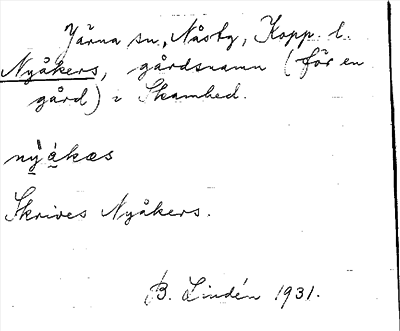 Järna sn, Nåsby, Kopp. l.
Nyåkers, gårdsnamn (för en
gård) i Skambed.
nỳákæs
Skrives Nyåkers.
B. Lindén 1931.